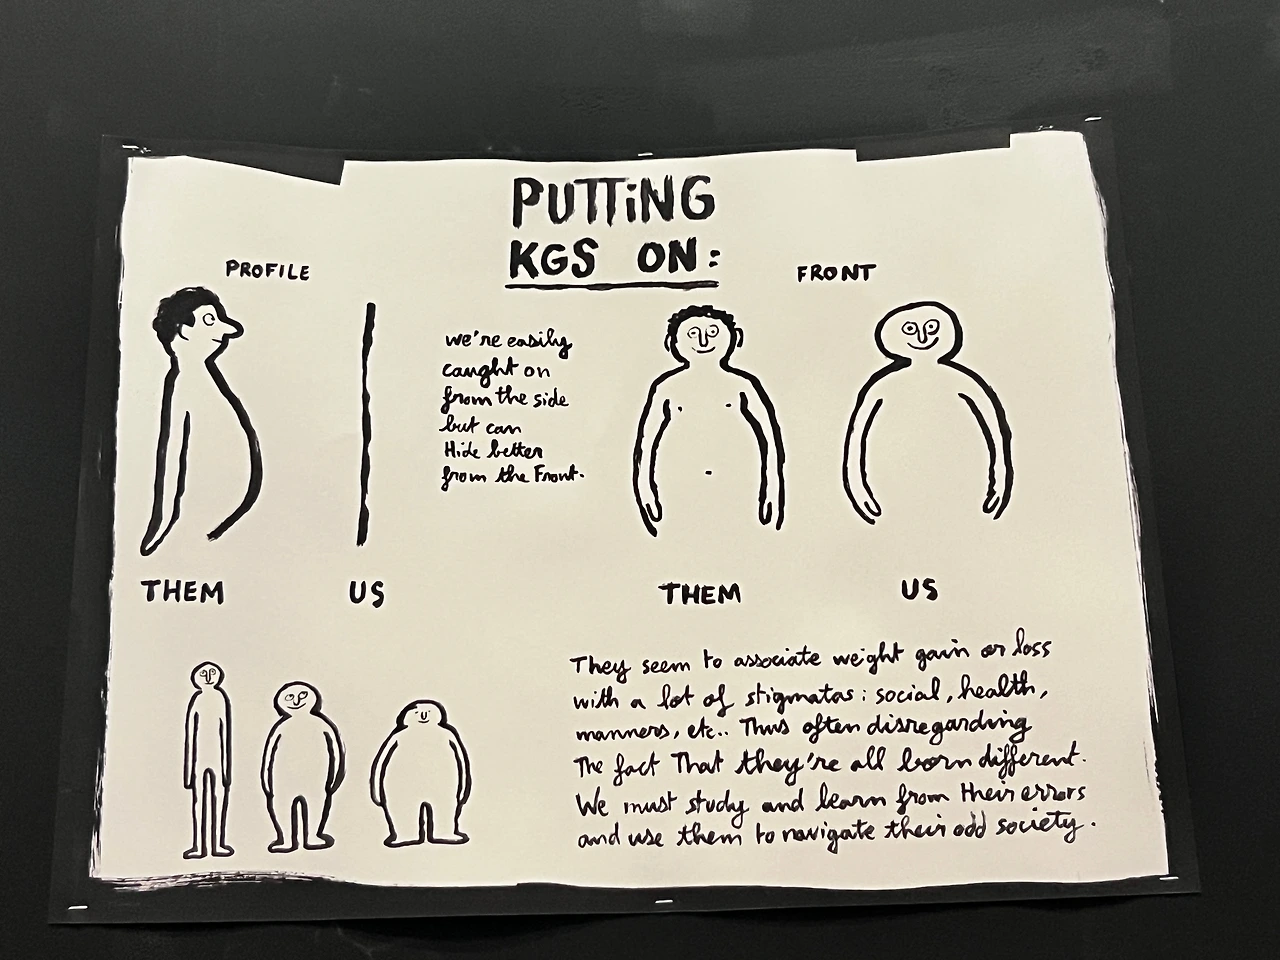 PUTTiNG
KGS ON:
PROFILE
FRONT
we're easily
caught on
from the side
but can
Hide better
from the Front.
THEM
US
THEM
US
They seem to associate weight gain or loss
with a lot of stigmatas : social, health,
manners, etc.. Thus often disregarding
The fact That they're all born different.
We must study and learn from their errors
and use them to navigate their odd society.